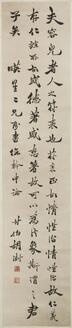 夫容皃者人之符表也符表正故情性治情性治故仁義
存仁義存故盛德著盛德著故可以為法象斯謂之君
子矣 星二兄 中論 甘伯胡澍